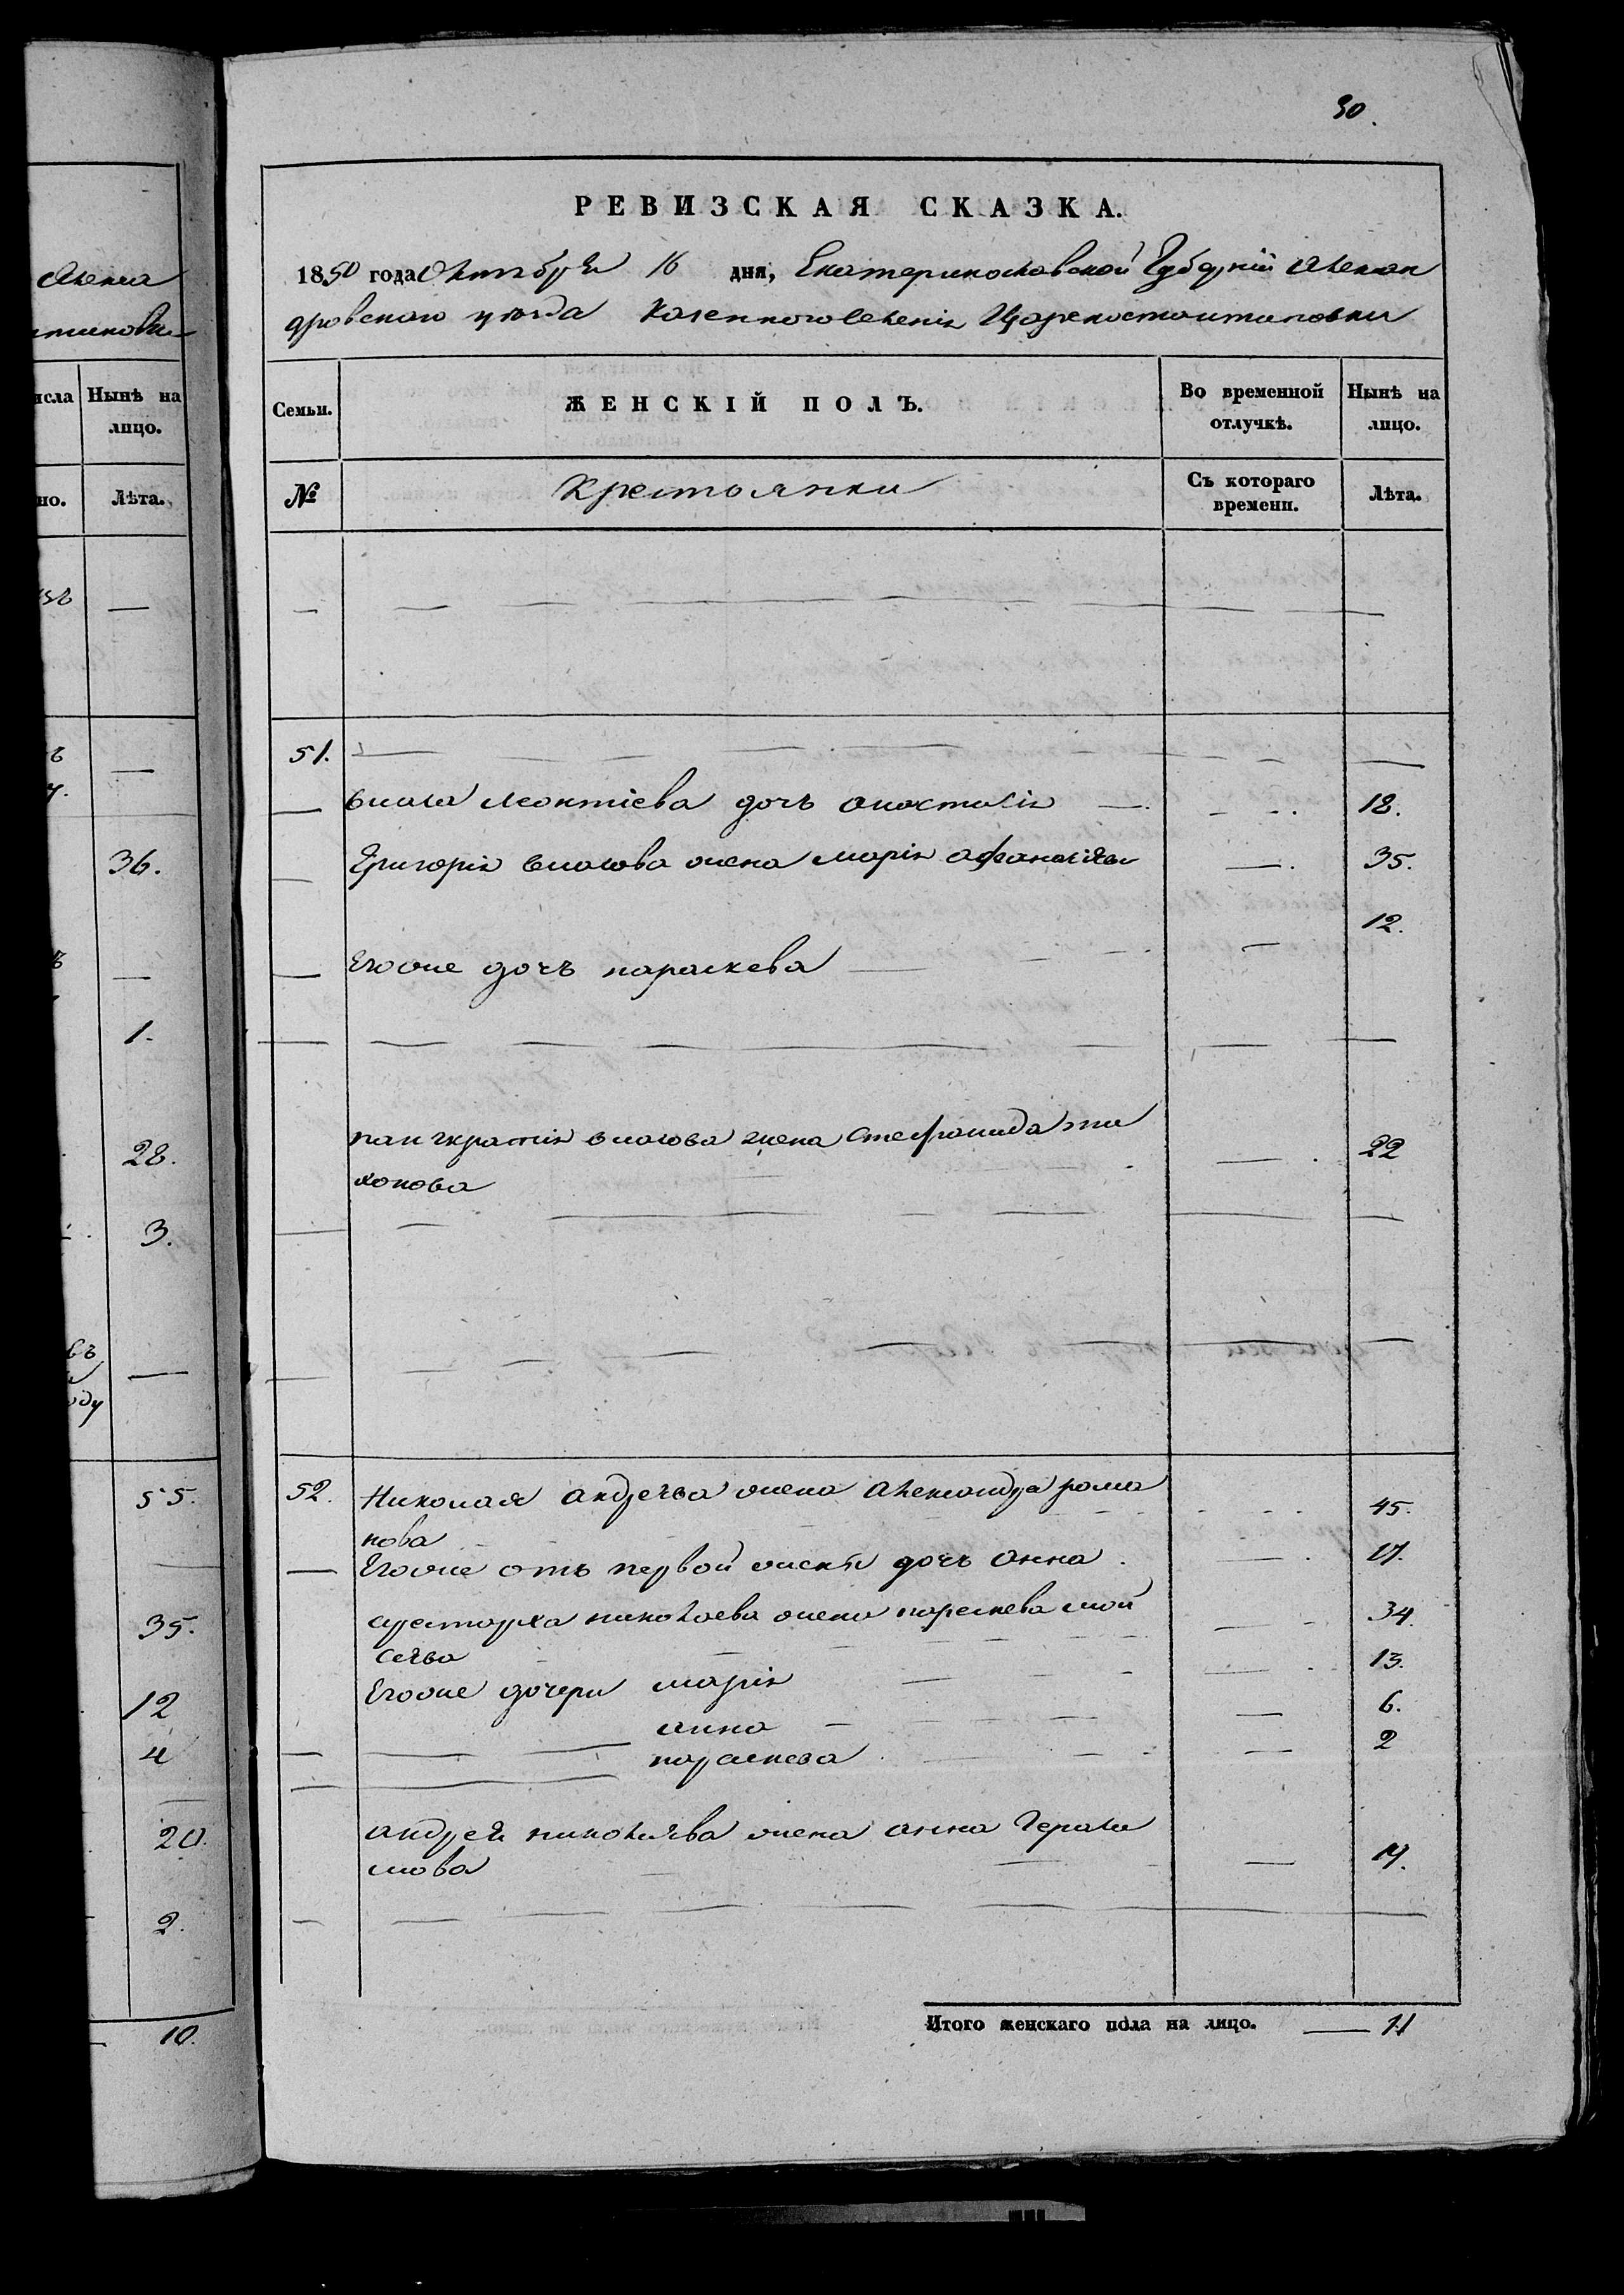 30.
РЕВИЗСКАЯ СКАЗКА.
1850 года Октября 16 дня, Екатеринославской Губерніи Алексан
дровскаго уезда Казенного селенія Цареконстантиновки
Семьи.
ЖЕНСКІЙ ПОЛЪ.
Во временной отлучкѣ.
Нынѣ на лицо.
№
Крестьянки
Съ котораго времени.
Лѣта.
51.
власа леонтіева дочь анастасія 18.
Григорія власова жена марія афанасіева 35.
Его же дочь параскева 12.
панъкратія власова жена стефанида ти 22
хонова
52. Николая андреева жена александра рома 45.
нова
Его же отъ первой жены дочь анна 17.
аристарха николаева жена параскева мои 34.
сеева
Его же дочери марія 13.
анна 6.
параскева 2
андрея николаева жена анна Гераси
мова 19.
Итого женскаго пола на лицо. 11
Алекса
нсла
Нынѣ на лицо.
но.
Лѣта.
36.
1.
28.
3.
55.
35.
12
4
20.
2.
10.